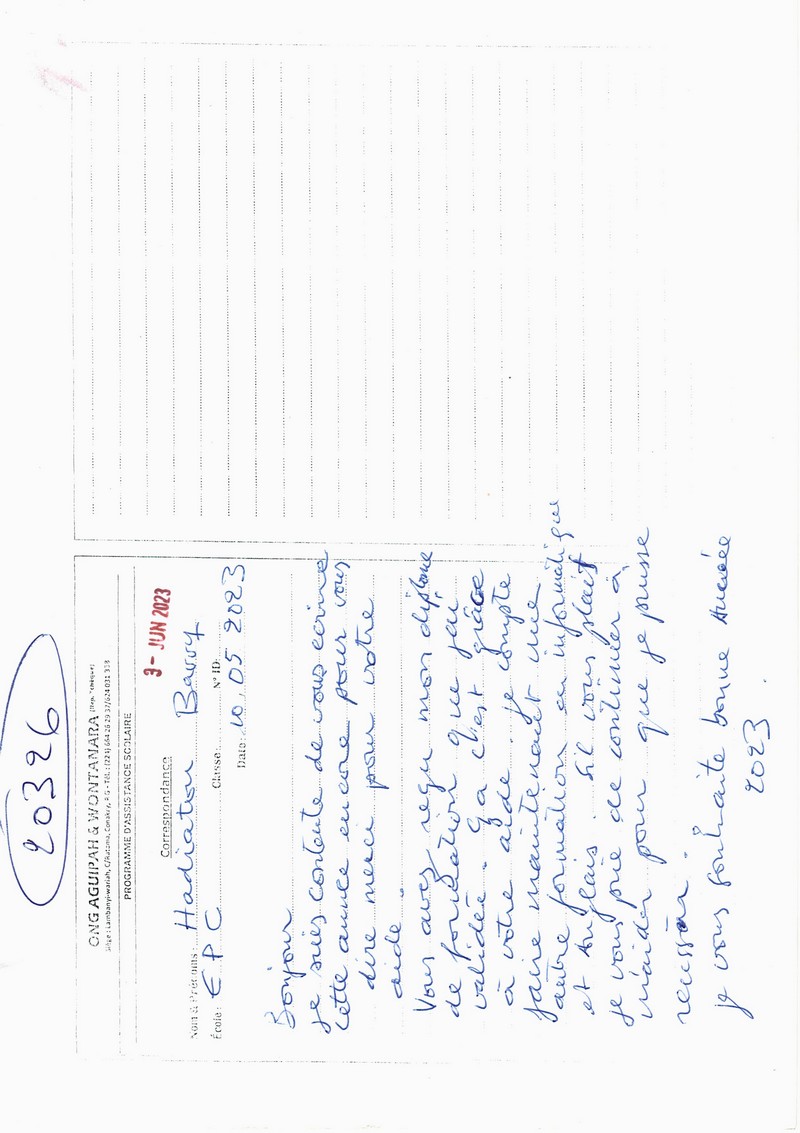 20326
ONG AGUIPAH & WONTANARA
PROGRAMME D'ASSISTANCE SCOLAIRE
3- JUN 2023
Correspondance
Nom & Prénoms: Hadiatou Barry
École: EPC Classe: N° ID:
Date: 10.05 2023
Bonjour
je suis contente de vous écrire
cette année encore pour vous
dire merci pour votre
aide.
Vous avez reçu mon diplome
de formation que j'ai
validée. ça c'est grâce
à votre aide. je compte
faire maintenant une
autre formation en informatique
et Anglais. Sil vous plait
je vous prie de continuer à
m'aider pour que je puisse
reussir.
je vous souhaite bonne Année
2023.